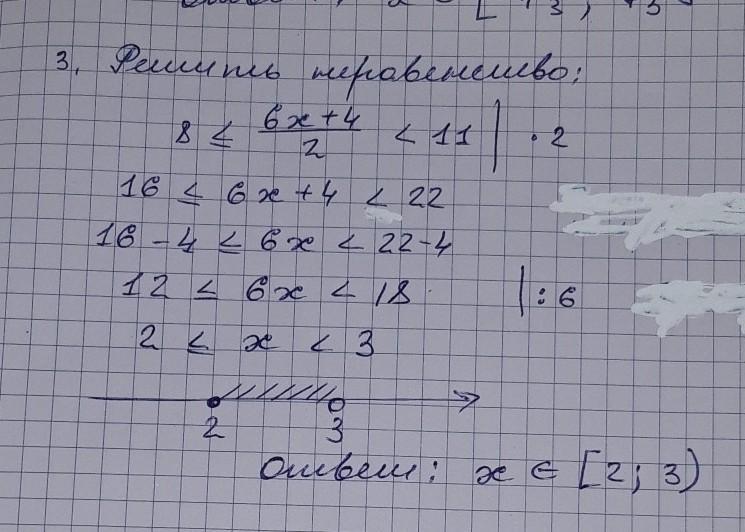 3. Решить неравенство:
8 ≤ (6x+4)/2 < 11 | · 2
16 ≤ 6x+4 < 22
16-4 ≤ 6x < 22-4
12 ≤ 6x < 18 | : 6
2 ≤ x < 3
2 3
Ответ: x ∈ [2; 3)